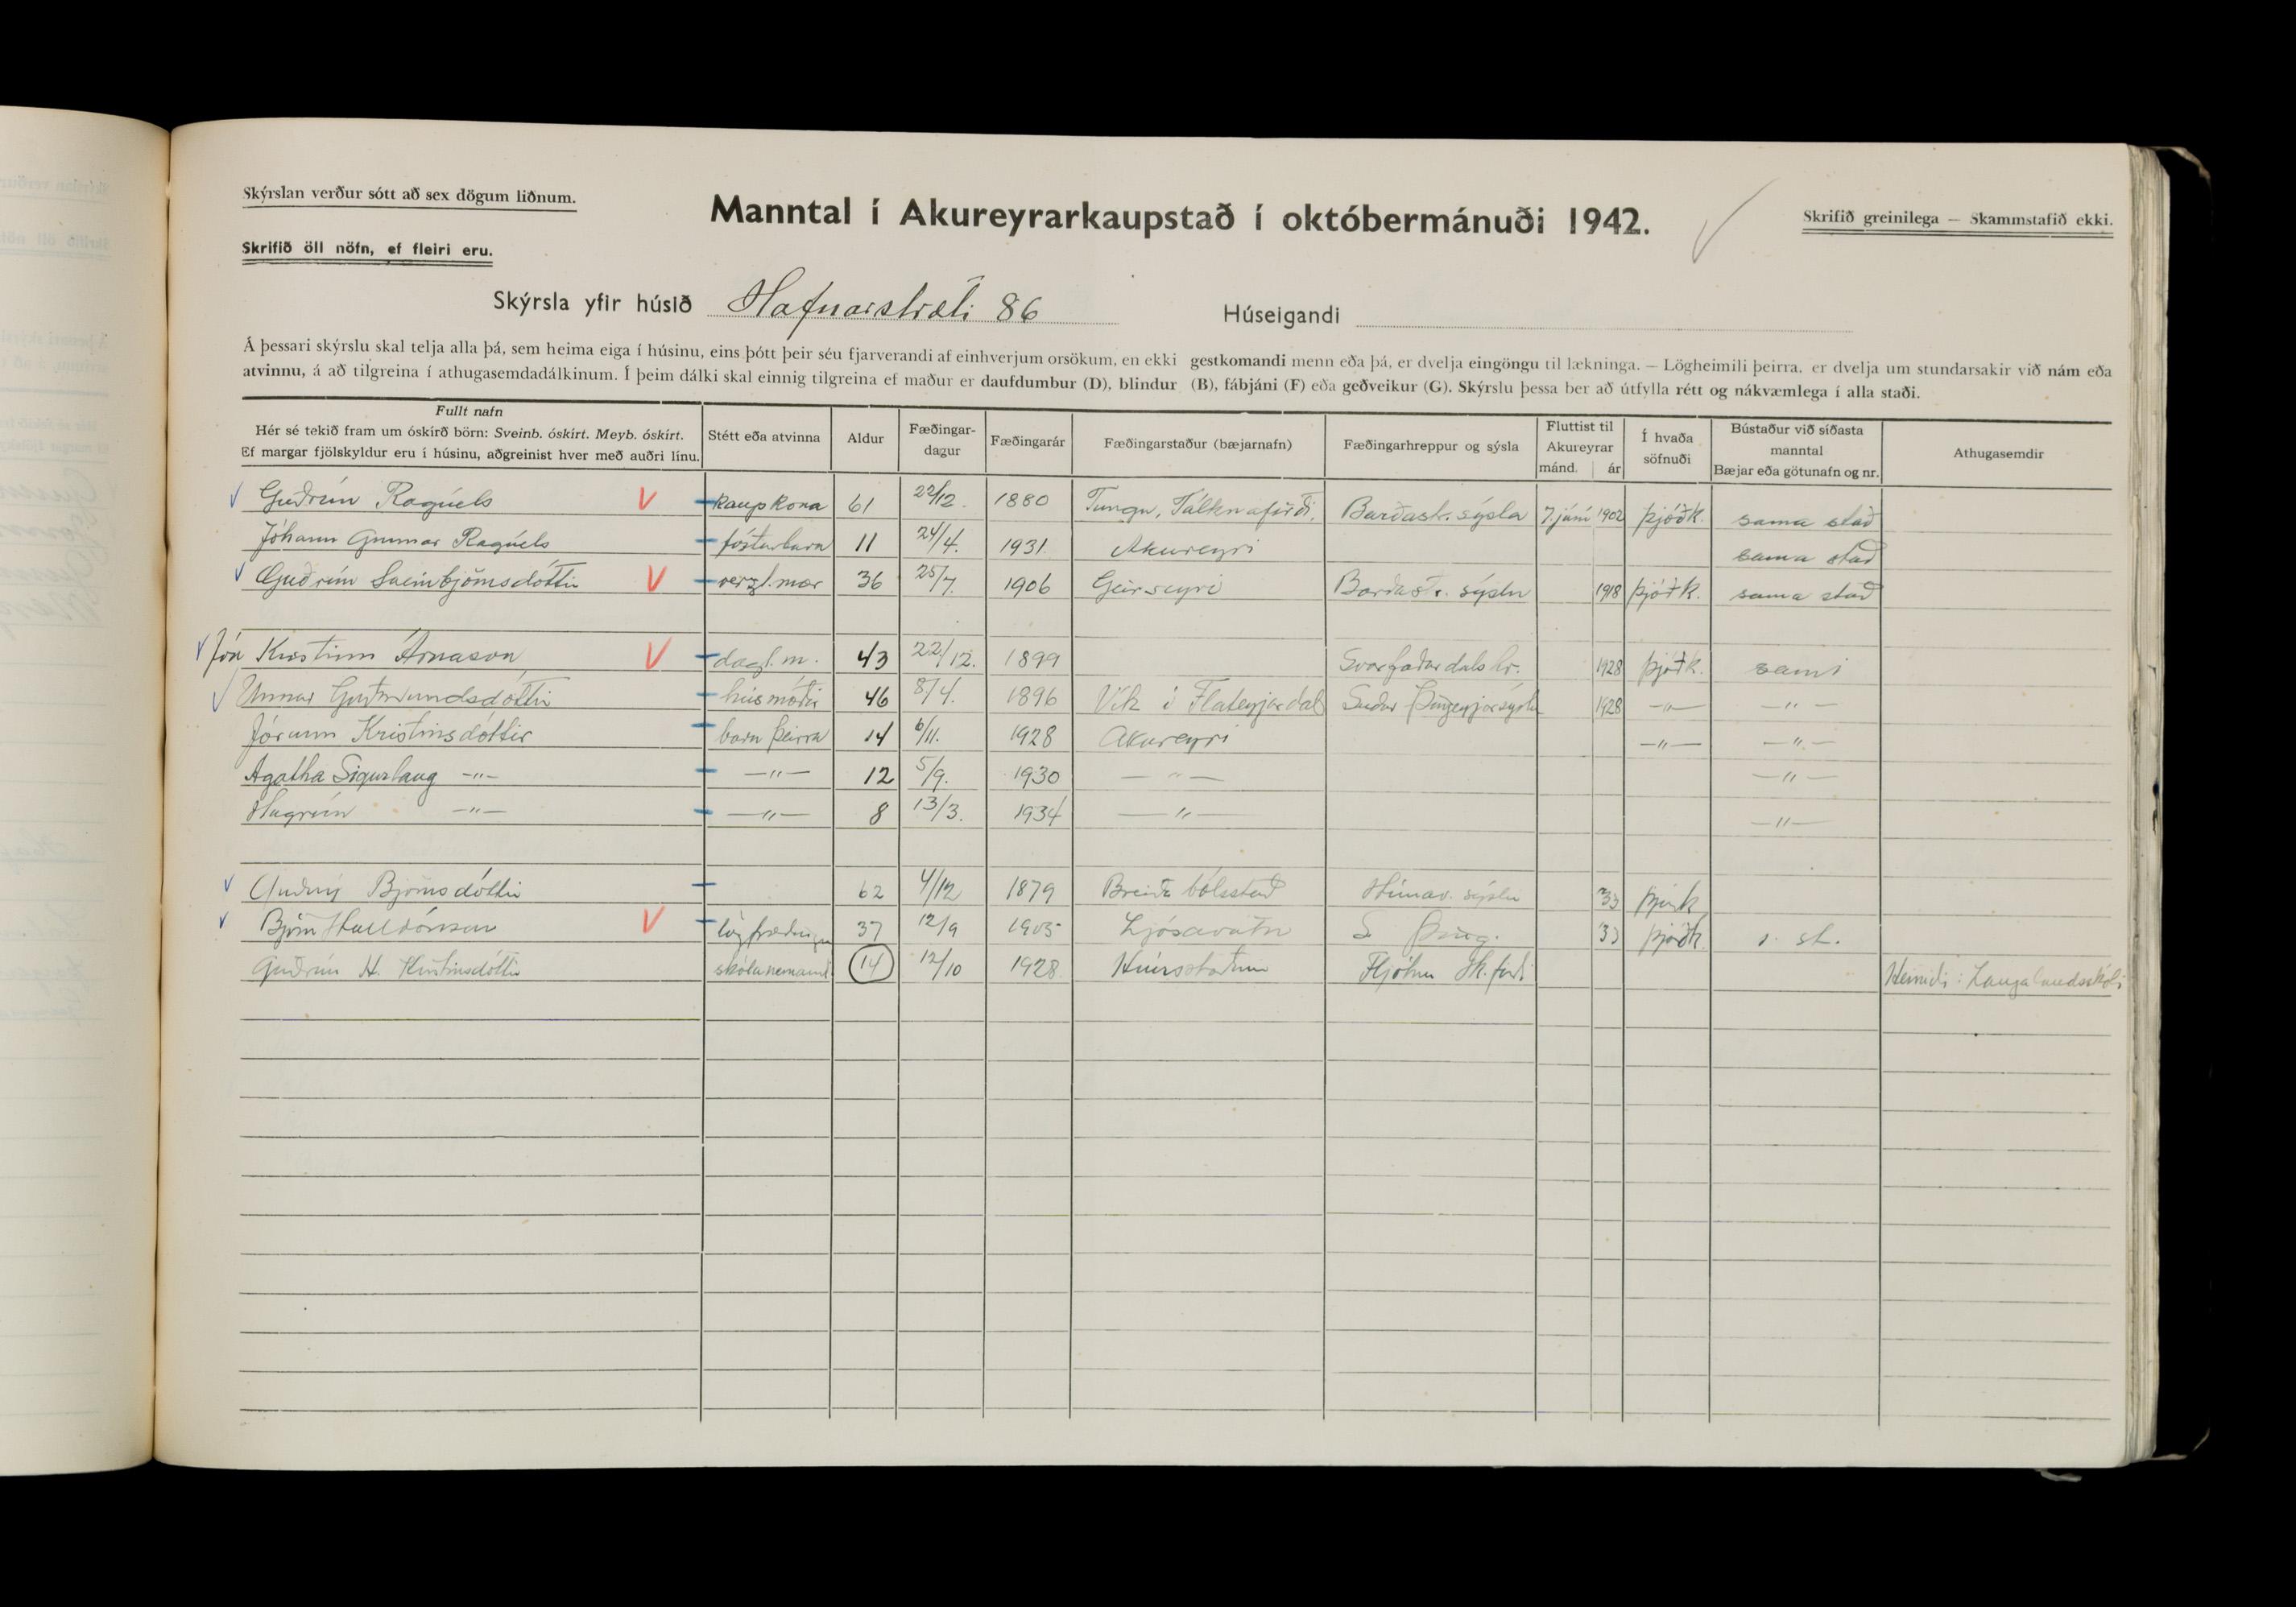 Skýrslan verður sótt að sex dögum liðnum.
Skrifið öll nöfn, ef fleiri eru.
Manntal í Akureyrarkaupstað í októbermánuði 1942.
Skrifið greinilega — Skammstafið ekki.
Skýrsla yfir húsið Hafnarstræti 86 Húseigandi
Á þessari skýrslu skal telja alla þá, sem heima eiga í húsinu, eins þótt þeir séu fjarverandi af einhverjum orsökum, en ekki gestkomandi menn eða þá, er dvelja eingöngu til lækninga. — Lögheimili þeirra. er dvelja um stundarsakir við nám eða
atvinnu, á að tilgreina í athugasemdadálkinum. Í þeim dálki skal einnig tilgreina ef maður er daufdumbur (D), blindur (B), fábjáni (F) eða geðveikur (G). Skýrslu þessa ber að útfylla rétt og nákvæmlega í alla staði.
Fullt nafn
Hér sé tekið fram um óskírð börn: Sveinb. óskírt. Meyb. óskírt.
Ef margar fjölskyldur eru í húsinu, aðgreinist hver með auðri línu.
Stétt eða atvinna
Aldur
Fæðingar-
dagur
Fæðingarár
Fæðingarstaður (bæjarnafn)
Fæðingarhreppur og sýsla
Fluttist til
Akureyrar
mánd. ár
Í hvaða
söfnuði
Bústaður við síðasta
manntal
Bæjar eða götunafn og nr.
Athugasemdir
Guðrún Ragúels kaupkona 61 22/12. 1880 Tungu, Tálknafirði. Barðast. sýsla 7. júní 1902 Þjóðk. sama stað
Jóhann Gunnar Ragúels fósturbarn 11 24/4. 1931 Akureyri sama stað
Guðrún Sveinbjörnsdóttir verzl.mær 36 25/7. 1906 Geirseyri Barðastr. sýslu 1918 Þjóðk. sama stað
Jón Kristinn Árnason dagl.m. 43 22/12. 1899 Svarfaðardalshr. 1928 Þjóðk. sami
Unnur Guðmundsdóttir húsmóðir 46 8/4. 1896 Vík á Flateyjardal Suður Þingeyjarsýslu 1928 —〃— —〃—
Jórunn Kristinsdóttir barn þeirra 14 6/11. 1928 Akureyri —〃— —〃—
Agatha Sigurlaug —〃— —〃— 12 5/9. 1930 —〃— —〃—
Hugrún —〃— —〃— 8 13/3. 1934 —〃— —〃—
Guðný Björnsdóttir 62 4/12 1879 Breiðabólsstað Húnav. sýslu 33 Þjóðk
Björn Halldórsson lögfræðingur 37 12/9 1905 Ljósavatn S Þing. 33 Þjóðk. s. st.
Guðrún H. Kristinsdóttir skólanemandi 14 12/10 1928 Fljótum Sk.firði Heimili: Laugalandsskóli